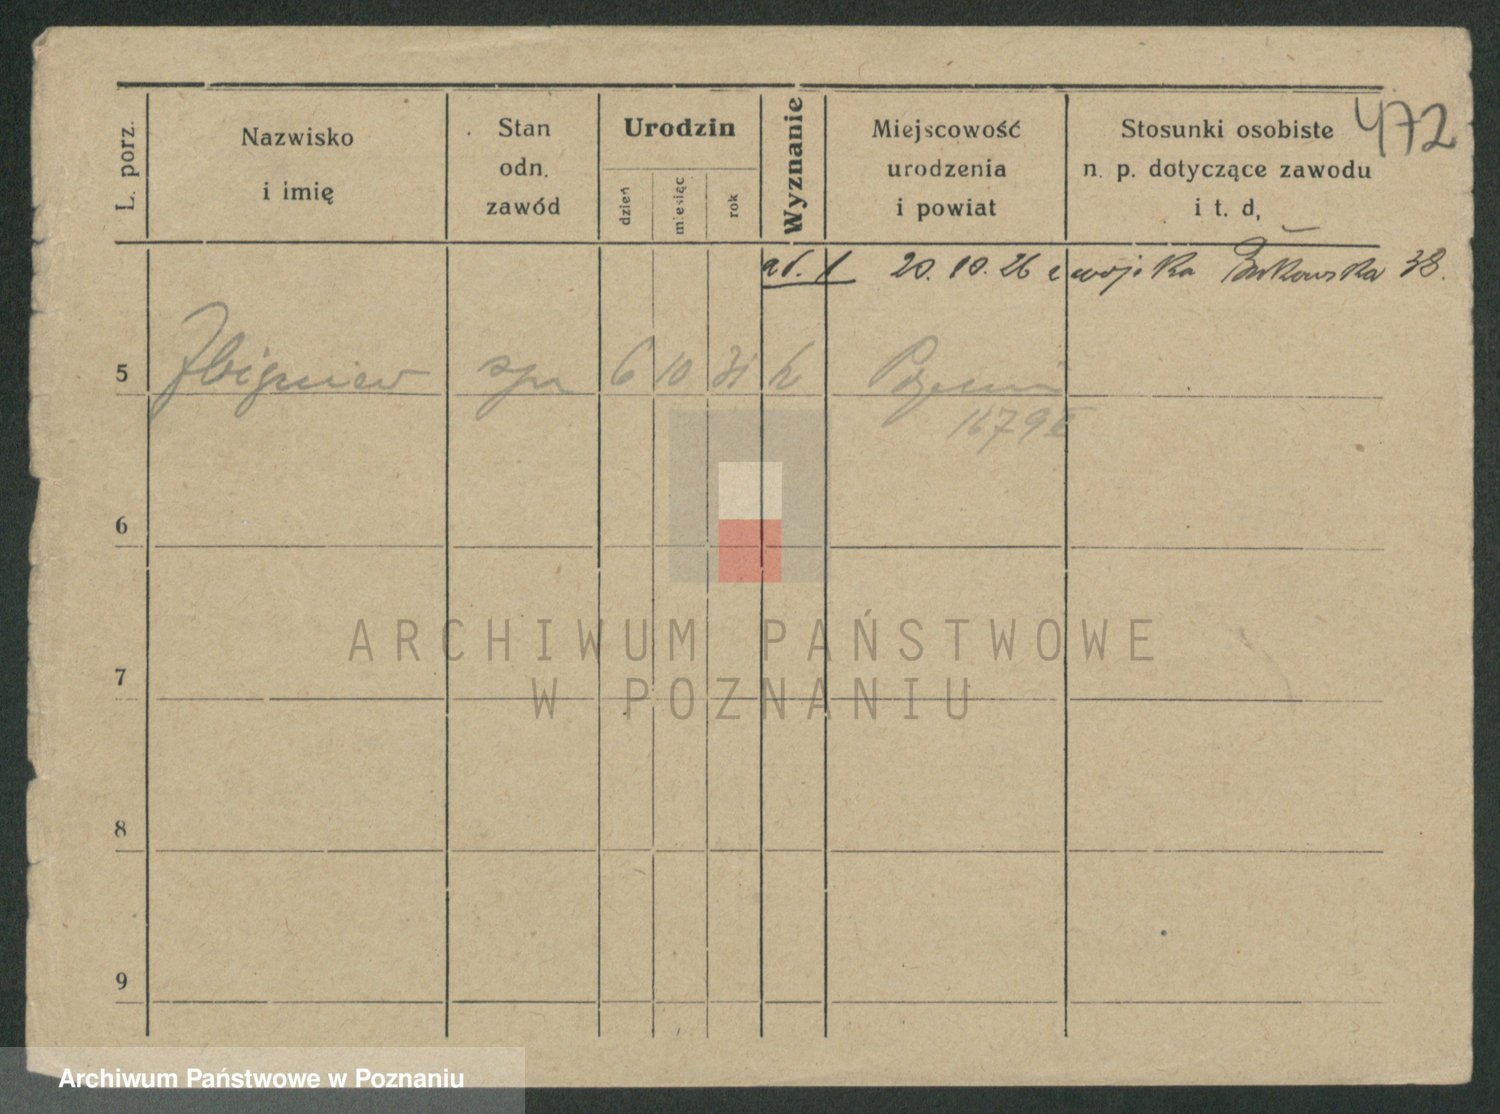 472
L. porz.
Nazwisko
i imię
Stan
odn.
zawód
Urodzin
dzień
miesiąc
rok
Wyznanie
Miejscowość
urodzenia
i powiat
Stosunki osobiste
n. p. dotyczące zawodu
i t. d,
ad. 1 20. 10. 26 z wojska Bukowska 38.
5 Zbigniew syn 6 10 31 k
6
7
8
9
ARCHIWUM PAŃSTWOWE
W POZNANIU
Archiwum Państwowe w Poznaniu